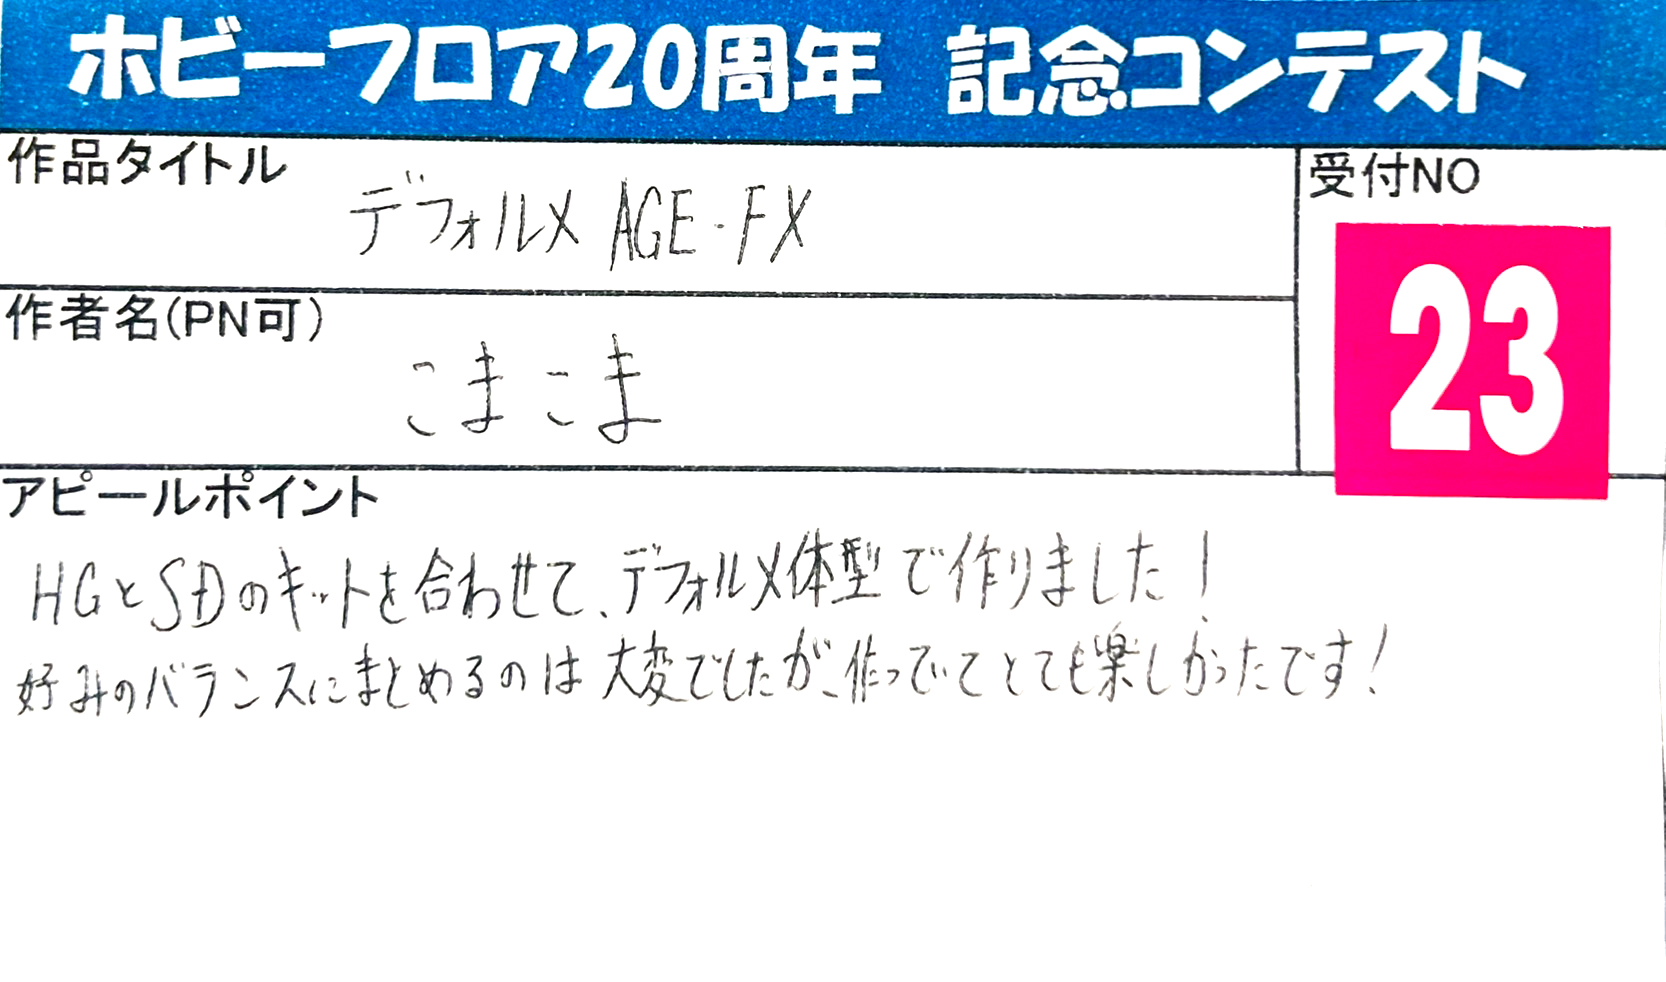 ホビーフロア20周年 記念コンテスト
作品タイトル
デフォルメ AGE-FX
受付NO
23
作者名(PN可)
こまこま
アピールポイント
HGとSDのキットを合わせて、デフォルメ体型で作りました!
好みのバランスにまとめるのは大変でしたが、作っていてとても楽しかったです!